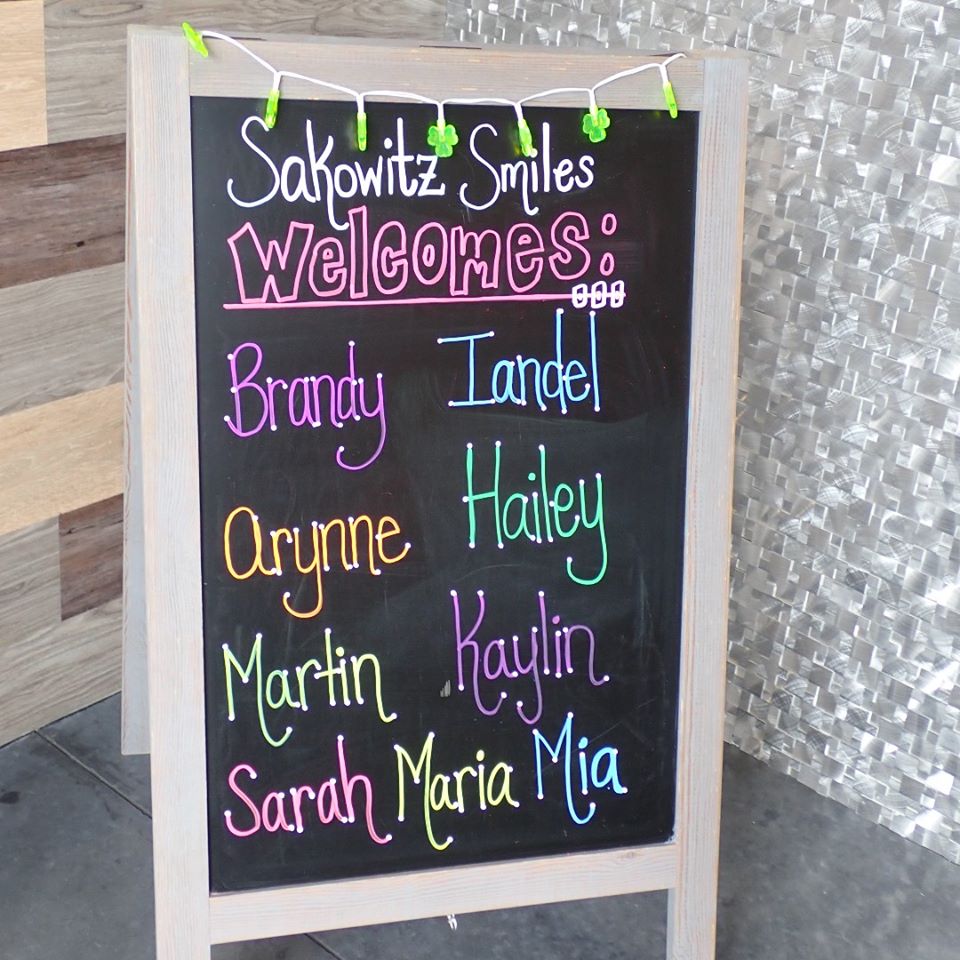 Sakowitz Smiles
Welcomes:
Brandy Iandel
Arynne Hailey
Martin Kaylin
Sarah Maria Mia